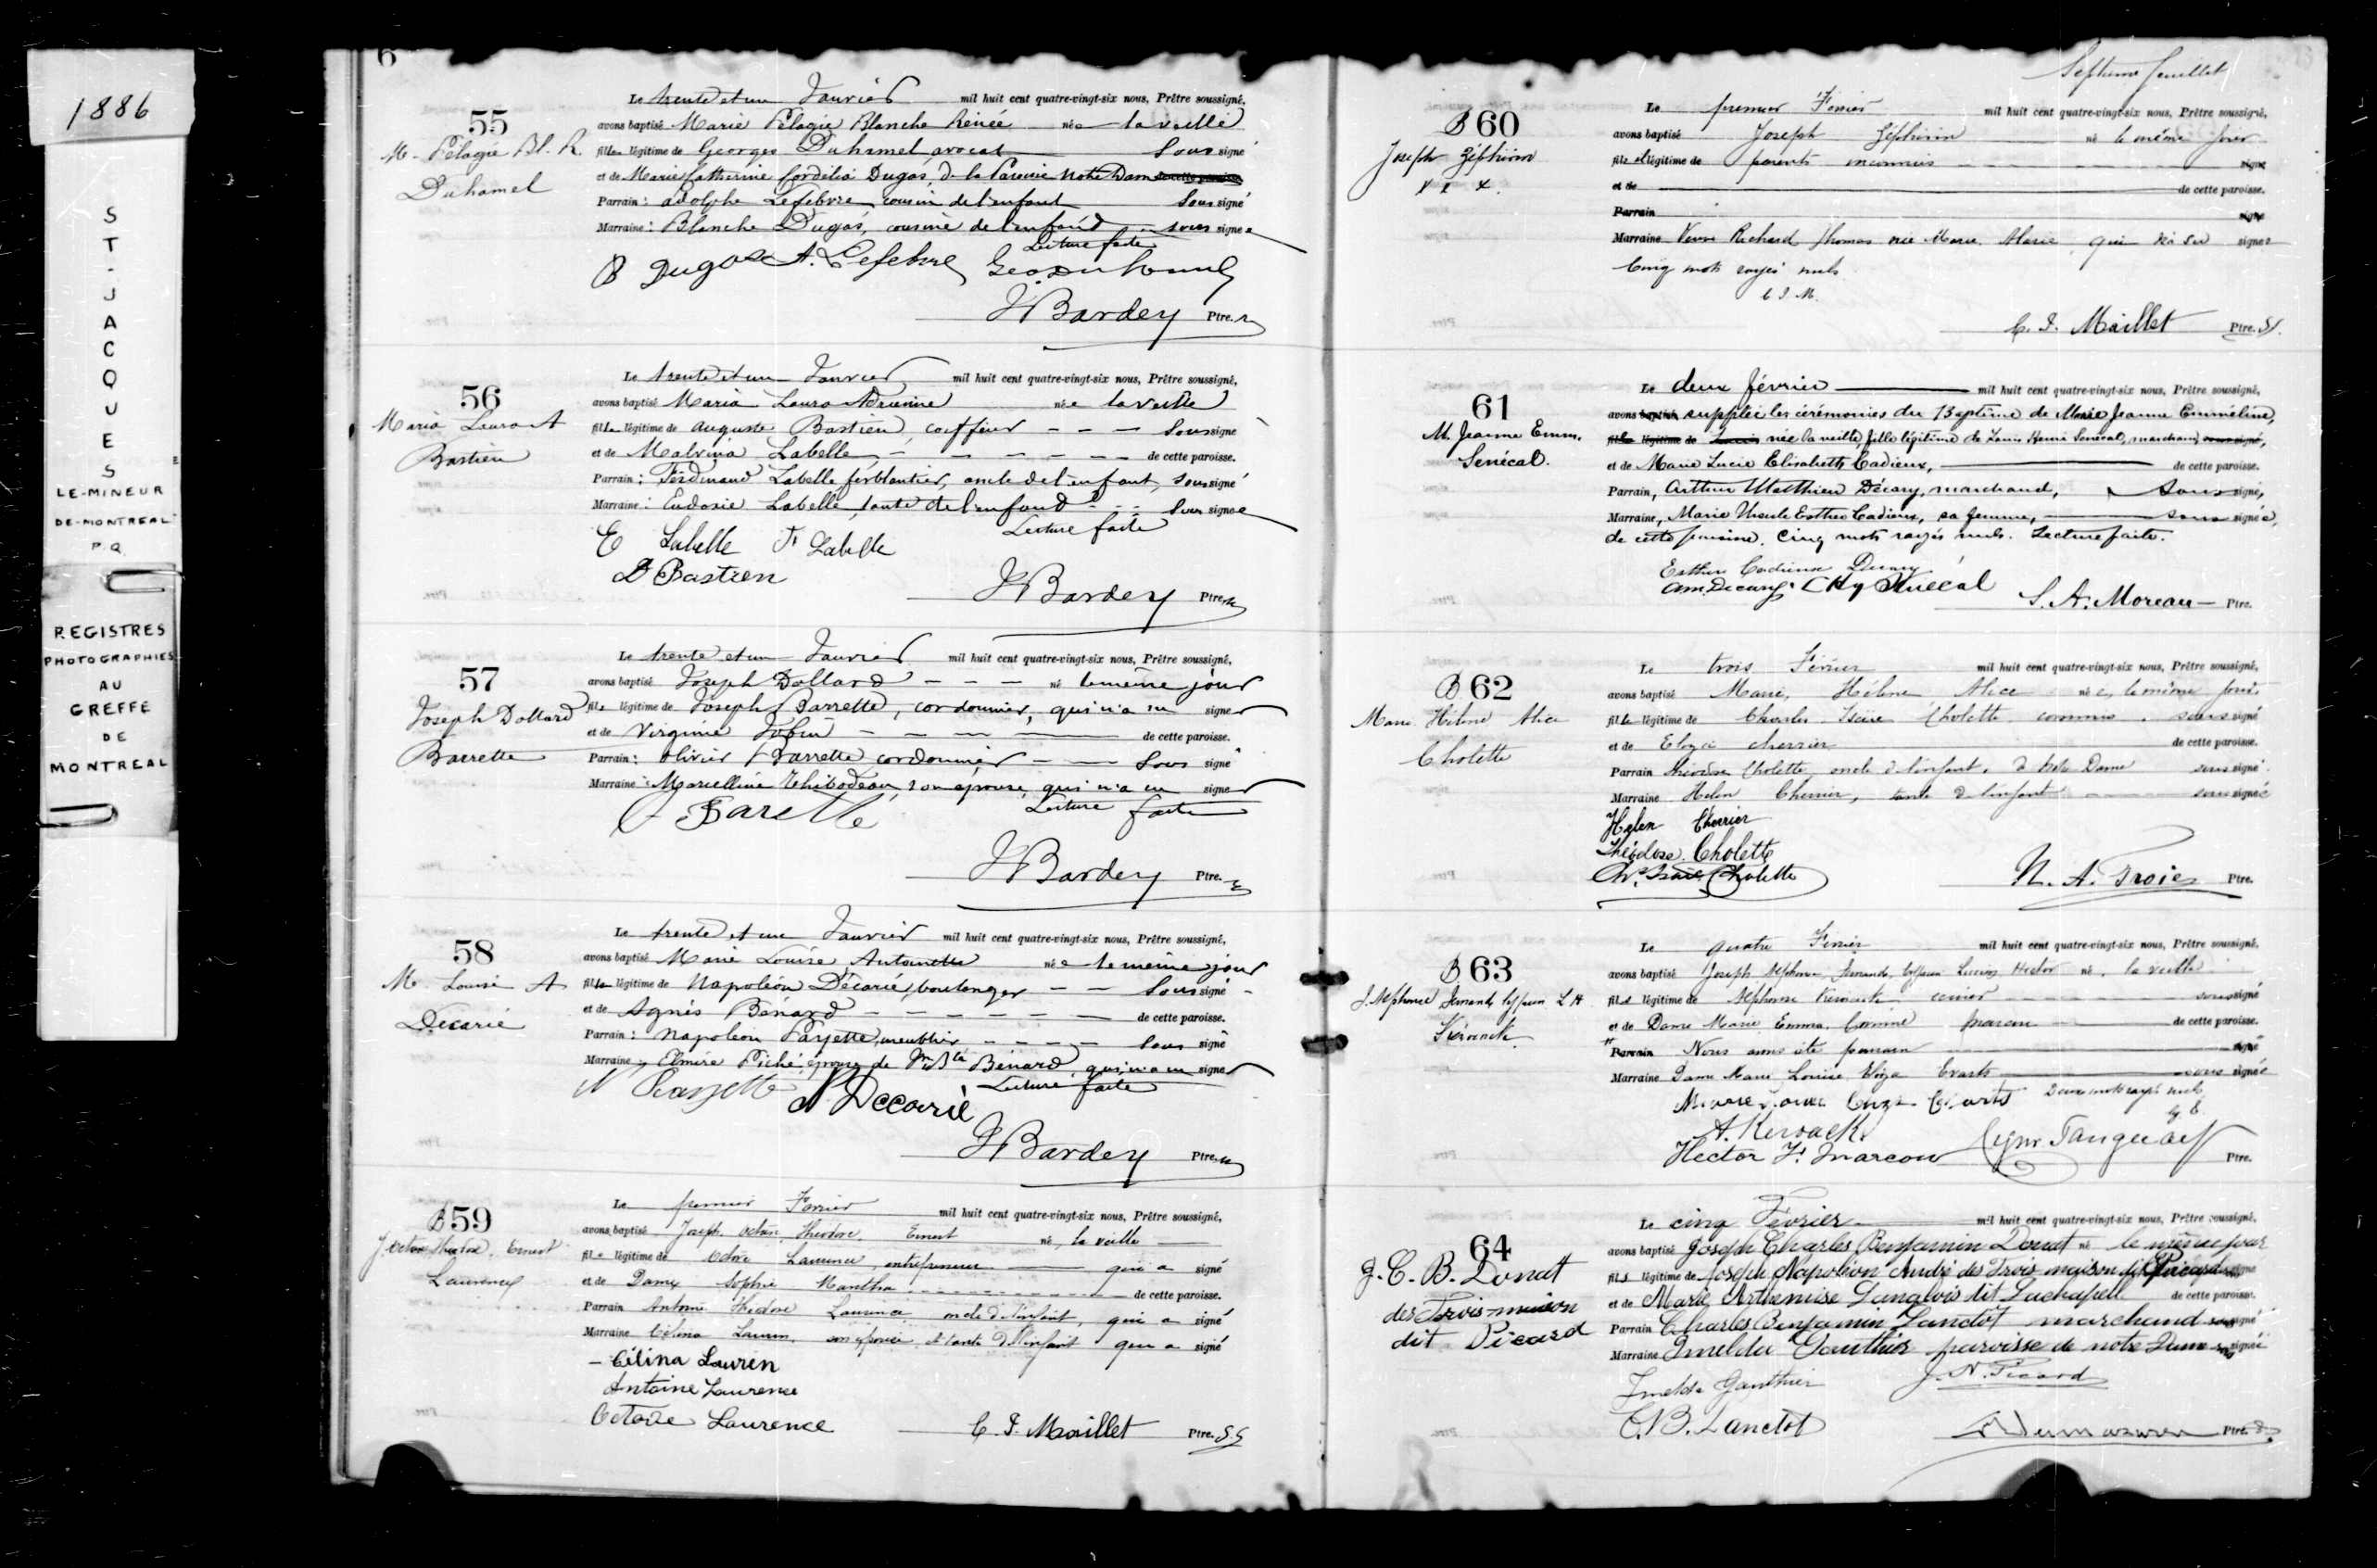 1886
ST-JACQUES
LE-MINEUR
DE-MONTREAL
P.Q.
REGISTRES
PHOTOGRAPHIES
AU
GREFFE
DE
MONTREAL
6
55
M. Pélagie Bl. R.
Duhamel
Le trente et un Janvier mil huit cent quatre-vingt-six nous, Prêtre soussigné,
avons baptisé Marie Pélagie Blanche Renée née la veille
fille légitime de Georges Duhamel avocat soussigné
et de Marie Catherine Cordélia Dugas de la Paroisse Notre Dame de cette paroisse
Parrain : Adolphe Lefebvre, cousin de l'enfant soussigné
Marraine : Blanche Dugas, cousine de l'enfant soussignée
Lecture faite
B Dugas A. Lefebvre Geo Duhamel
J Bardey Ptre.
56
Maria Laura A
Bastien
Le trente et un Janvier mil huit cent quatre-vingt-six nous, Prêtre soussigné,
avons baptisé Maria Laura Adrienne née la veille
fille légitime de Auguste Bastien, coiffeur soussigné
et de Malvina Labelle de cette paroisse.
Parrain : Ferdinand Labelle ferblantier, oncle de l'enfant, soussigné
Marraine : Eudoxie Labelle, tante de l'enfant soussignée
Lecture faite
E Labelle F Labelle
Bastien
J Bardey Ptre.
57
Joseph Dollard
Barrette
Le trente et un Janvier mil huit cent quatre-vingt-six nous, Prêtre soussigné,
avons baptisé Joseph Dollard né le même jour
fils légitime de Joseph Barrette, cordonnier, qui n'a su signer
et de Virginie Jobin de cette paroisse.
Parrain : Olivier Barrette cordonnier soussigné
Marraine : Marcelline Thibodeau, son épouse, qui n'a su signer
Lecture faite
O Barette
J Bardey Ptre.
58
M. Louise A
Décarie
Le trente et un Janvier mil huit cent quatre-vingt-six nous, Prêtre soussigné,
avons baptisé Marie Louise Antoinette née le même jour
fille légitime de Napoléon Décarie, boulanger soussigné
et de Agnès Bénard de cette paroisse.
Parrain : Napoléon Payette, meublier, soussigné
Marraine : Elmire Piché épouse de Bénard, qui n'a su signer
Lecture faite
N Payette N Décarie
J Bardey Ptre.
B 59
J. Octave Théodore Ernest
Laurence
Le premier Février mil huit cent quatre-vingt-six nous, Prêtre soussigné,
avons baptisé Joseph Octave Théodore Ernest né la veille
fils légitime de Octave Laurence, entrepreneur qui a signé
et de Dame Sophie Mantha de cette paroisse.
Parrain Antoine Théodore Laurence oncle de l'enfant, qui a signé
Marraine Célina Laurin, son épouse et tante de l'enfant qui a signé
Célina Laurin
Antoine Laurence
Octave Laurence
C. J. Maillet Ptre. S.S
Septième feuillet
B 60
Joseph Zéphirin
x x x.
Le premier Février mil huit cent quatre-vingt-six nous, Prêtre soussigné,
avons baptisé Joseph Zéphirin né le même jour
fils légitime de parents inconnus signé
et de de cette paroisse.
Parrain signé
Marraine Veuve Richard Thomas née Marie qui n'a su signer
Cinq mots rayés nuls
C J. M.
C. J. Maillet Ptre. S.
61
M. Jeanne Emm.
Senécal.
Le deux février mil huit cent quatre-vingt-six nous, Prêtre soussigné,
avons baptisé suppléé les cérémonies du Baptême de Marie Jeanne Emméline,
fille légitime de née la veille, fille légitime de Louis Henri Senécal, marchand, soussigné,
et de Marie Lucie Elisabeth Cadieux, de cette paroisse.
Parrain, Arthur Matthieu Décary, marchand, soussigné,
Marraine, Marie Ursule Esther Cadieux, sa femme, soussignée,
de cette paroisse. Cinq mots rayés nuls. Lecture faite.
Esther Cadieux Decary
Am. Decary Hy Senécal
S. A. Moreau Ptre.
B 62
Marie Hélène Alice
Cholette
Le trois Février mil huit cent quatre-vingt-six nous, Prêtre soussigné,
avons baptisé Marie, Hélène Alice née, le même jour
fille légitime de Charles Isaïe Cholette commis soussigné
et de Eloza Cherrier de cette paroisse.
Parrain Théodose Cholette oncle de l'enfant, de Notre Dame soussigné
Marraine Helen Cherrier, tante de l'enfant soussignée
Helen Cherrier
Théodose Cholette
Chs. Isaïe Cholette
N. A. Troie Ptre.
B 63
J. Alphonse Fernando L H
Kérouack
Le quatre Février mil huit cent quatre-vingt-six nous, Prêtre soussigné,
avons baptisé Joseph Alphonse Fernando Lucien Hector né, la veille
fils légitime de Alphonse Kérouack soussigné
et de Dame Marie Emma de cette paroisse.
Parrain Nous avons été parrain signé
Marraine Dame Marie Louise Eliza Evarts soussignée
Marie Louise Eliza Evarts Deux mots rayés nuls
A. Kerouack
Hector F. Marcou Cypr Tanguay Ptre.
64
J. C. B. Donat
des Trois-maison
dit Picard
Le cinq Février mil huit cent quatre-vingt-six nous, Prêtre soussigné,
avons baptisé Joseph Charles Benjamin Donat né le même jour
fils légitime de Joseph Napoléon André des Trois maison dit Picard soussigné
et de Marie Arthemise Langlois dit Lachapell de cette paroisse.
Parrain Charles Benjamin Lanctôt marchand soussigné
Marraine Imelda Gauthier paroisse de notre Dame soussignée
Imelda Gauthier J. N. Picard
C. B. Lanctot
Ptre.